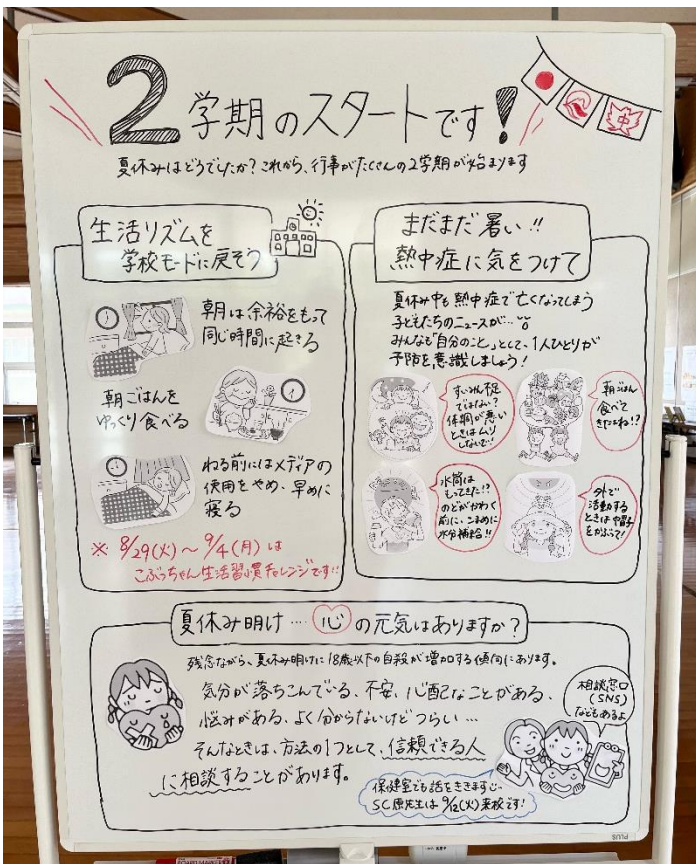 2学期のスタートです!
中
夏休みはどうでしたか?これから、行事がたくさんの2学期が始まります
生活リズムを
学校モードに戻そう
朝は余裕をもって
同じ時間に起きる
朝ごはんを
ゆっくり食べる
ねる前にはメディアの
使用をやめ、早めに
寝る
※ 8/29(火)〜9/4(月)は
こぶっちゃん生活習慣チャレンジです!!
まだまだ暑い!!
熱中症に気をつけて
夏休み中も熱中症で亡くなってしまう
子どもたちのニュースが…
みんなも"自分のこと"として、1人ひとりが
予防を意識しましょう!
すいみん不足
ではない?
体調が悪い
ときはムリ
しないで!
朝ごはん
食べて
きたよね!?
水筒は
もってきた!?
のどがかわく
前に、こまめに
水分補給!!
外で
活動する
ときは帽子
をかぶって!
夏休み明け…心の元気はありますか?
残念ながら、夏休み明けに18歳以下の自殺が増加する傾向にあります。
気分が落ちこんでいる、不安、心配なことがある、
悩みがある、よく分からないけどつらい…
そんなときは、方法の1つとして、信頼できる人
に相談することがあります。
相談窓口
(SNS)
などもあるよ
保健室でも話をききます
SC原先生は9/12(火)来校です!
PLUS